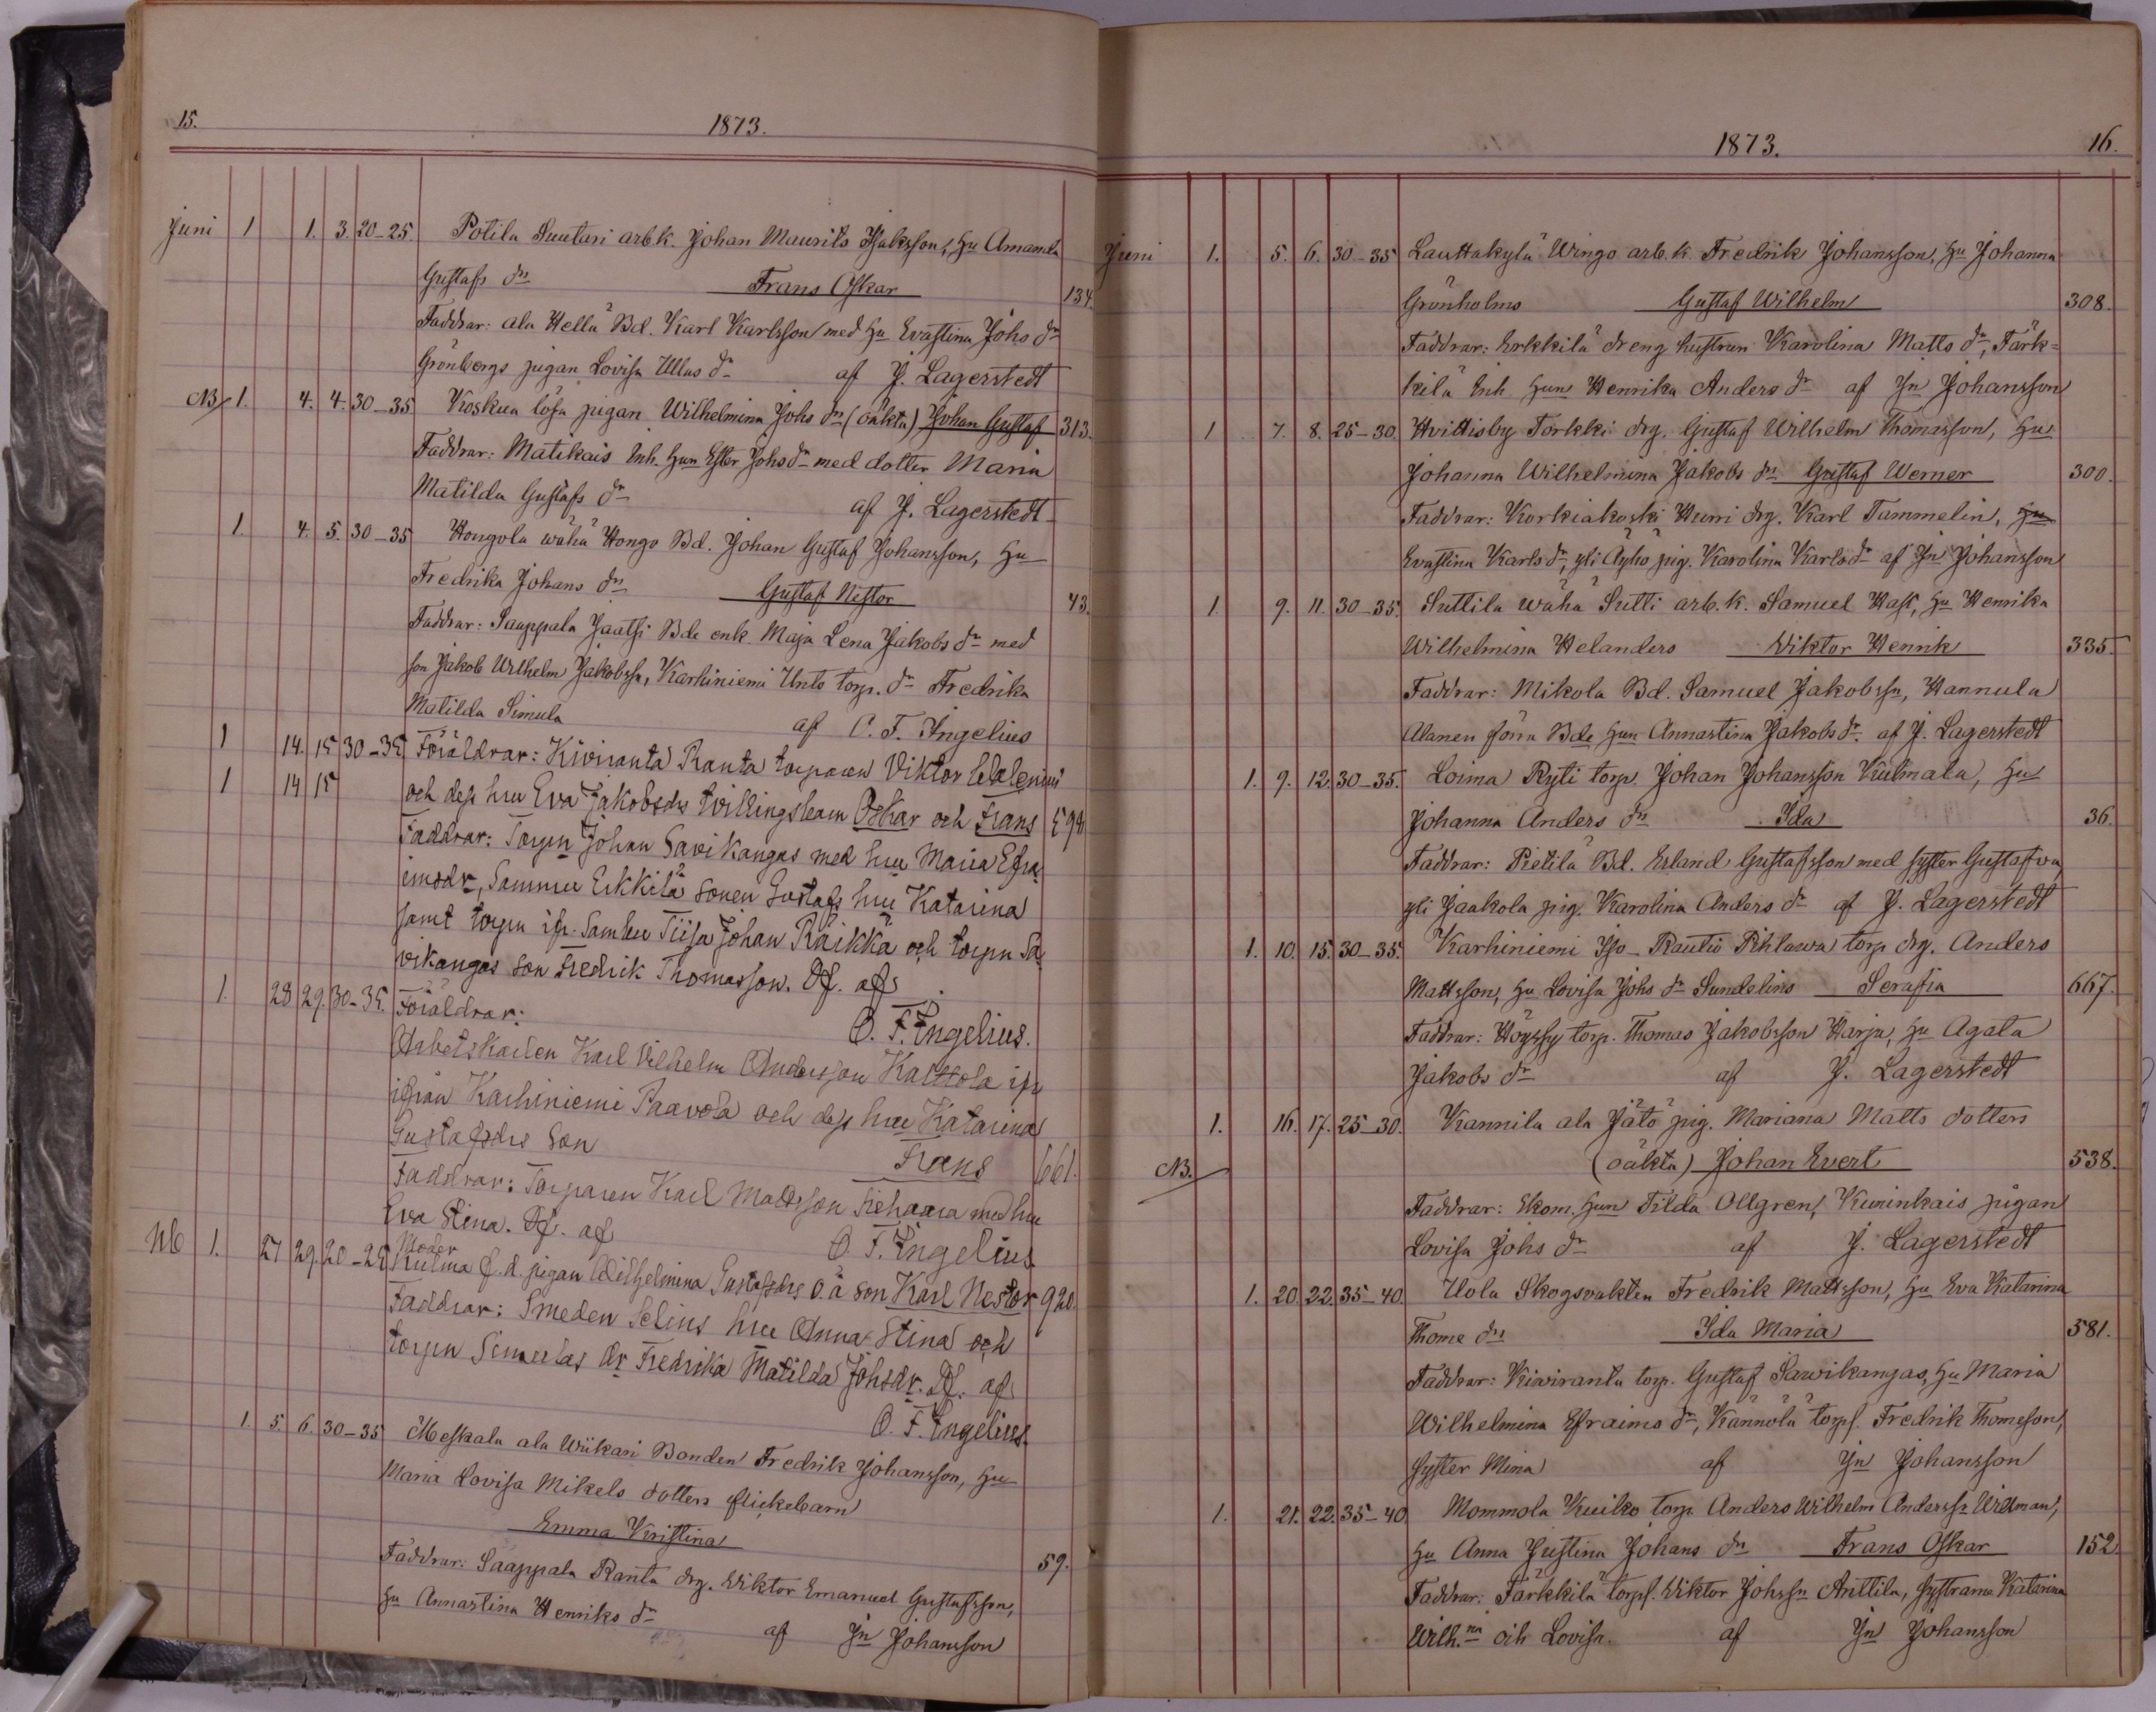 15.
1873.
Juni 1 1. 3. 20-25. Potila Suutari arb.k. Johan Maurits Isaksson, Hu Amanda
Gustafs dr Frans Oskar 134.
Faddrar: ala Hellä Bd. Karl Karlsson med Hu Evastina Johs dr
Grönbergs pigan Lovisa Ullus dr af J. Lagerstedt
NB 1. 4. 4. 30-35 Koskua lösa pigan Wilhelmina Johs drs (oäkta) Johan Gustaf 313.
Faddrar: Matikais Inh. Hun Ester Johs dr med dotter Maria
Matilda Gustafs dr af J. Lagerstedt
1. 4. 5. 30-35 Hongola wähä Hongo Bd. Johan Gustaf Johansson, Hu
Fredrika Johans drs Gustaf Nestor 43.
Faddrar: Sauppala Jaatsi Bde enk. Maja Lena Jakobs dr med
son Jakob Wilhelm Jakobssn, Karhiniemi Unto torp. dr Fredrika
Matilda Simula af O. F. Ingelius
1 14. 15 30-35 Föräldrar: Kiviranta Ranta torparen Viktor Walenius
1 14 15 och dess hru Eva Jakobsdrs tvillingsbarn Oskar och Frans 594
Faddrar: Torpn Johan Savikangas med hru Maria Efra
imsdr, Sammu Erkkilä sonen Gustafs hru Katarina
samt torpn ifr. Sambu Tiisa Johan Räikkä och torpn Sa
vikangas son Fredrik Thomasson. Df. af
1. 28 29. 30-35. Föräldrar: O. F. Ingelius.
Arbetskarlen Karl Vilhelm Andersson Kalttola ifr
ifrån Karhiniemi Paavola och dess hru Katarina
Gustafsdrs son Frans 661.
Faddrar: Torparen Karl Mattsson Fiehaara med hru
Eva Stina. Df. af O. F. Ingelius
Nb 1. 27 29. 20-25 Moder Kulma f.d. pigan Wilhelmina Gustafsdrs o.ä son Karl Nestor 920.
Faddrar: Smeden Selins hru Anna Stina och
torpn Simulas dr Fredrika Matilda Johsdr. Df. af
O. F. Ingelius.
1. 5. 6. 30-35 Meskala ala Wiikari Bonden Fredrik Johansson, Hu
Maria Lovisa Mikels dotters flickebarn
Emma Kristina 59.
Faddrar: Saappala Ranta drg. Wiktor Emanuel Gustafsson,
Hu Annastina Henriks dr af Jn Johansson
1873. 16.
Juni 1. 5. 6. 30-35 Lauttakylä Wingo arb.k. Fredrik Johansson, Hu Johanna
Grönholms Gustaf Wilhelm 308.
Faddrar: Erkkilä dreng hustrun Karolina Matts dr, Tärk=
kilä Inh. Hun Henrika Anders dr af Jn Johansson
1 7. 8. 25-30 Hvittisby Torkki drg. Gustaf Wilhelm Thomasson, Hu
Johanna Wilhelmina Jakobs drs Gustaf Werner 300.
Faddrar: Korkiakoski Hurri drg. Karl Tammelin, Hu
Evastina Karls dr, yli Äyhö pig. Karolina Karls dr af Jn Johansson
1. 9. 11. 30-35. Suttila wähä Sutti arb.k. Samuel Hast, Hu Henrika
Wilhelmina Helanders Wiktor Henrik 335.
Faddrar: Mikola Bd. Samuel Jakobssn, Hannula
Alanen förra Bde Hun Annastina Jakobs dr. af J. Lagerstedt
1. 9. 12. 30-35. Loima Ryti torp. Johan Johansson Kulmala, Hu
Johanna Anders drs Ida 36.
Faddrar: Pietilä Bd. Erland Gustafsson med syster Gustafva,
yli Jaakola pig. Karolina Anders dr af J. Lagerstedt
1. 10. 15. 30-35. Karhiniemi Iso-Rautio Pihlawa torp drg. Anders
Mattsson, Hu Lovisa Johs dr Sundelins Serafia 667.
Faddrar: Höyssy torp. Thomas Jakobsson Harju, Hu Agata
Jakobs dr af J. Lagerstedt
1. 16. 17. 25-30. Kannila ala Jätö pig. Mariana Matts dotters
NB. (oäkta) Johan Evert 538.
Faddrar: Skom. Hun Tilda Ollgren, Kuninkais pigan
Lovisa Johs dr af J. Lagerstedt
1. 20 22. 35-40. Uola Skogsvakten Fredrik Mattsson, Hu Eva Katarina
Thome drs Ida Maria 581.
Faddrar: Kiwiranta torp. Gustaf Sawikangas, Hu Maria
Wilhelmina Efraims dr, Kännölä torps. Fredrik Thomeson,
syster Mina af Jn Johansson
1. 21. 22. 35-40. Mommola Kuiko torp. Anders Wilhelm Anderssn Widman,
Hu Anna Justina Johans drs Frans Oskar 152.
Faddrar: Tärkkilä torps. Wiktor Johssn Anttila, systrarne Katarina
Wilh.na och Lovisa. af Jn Johansson